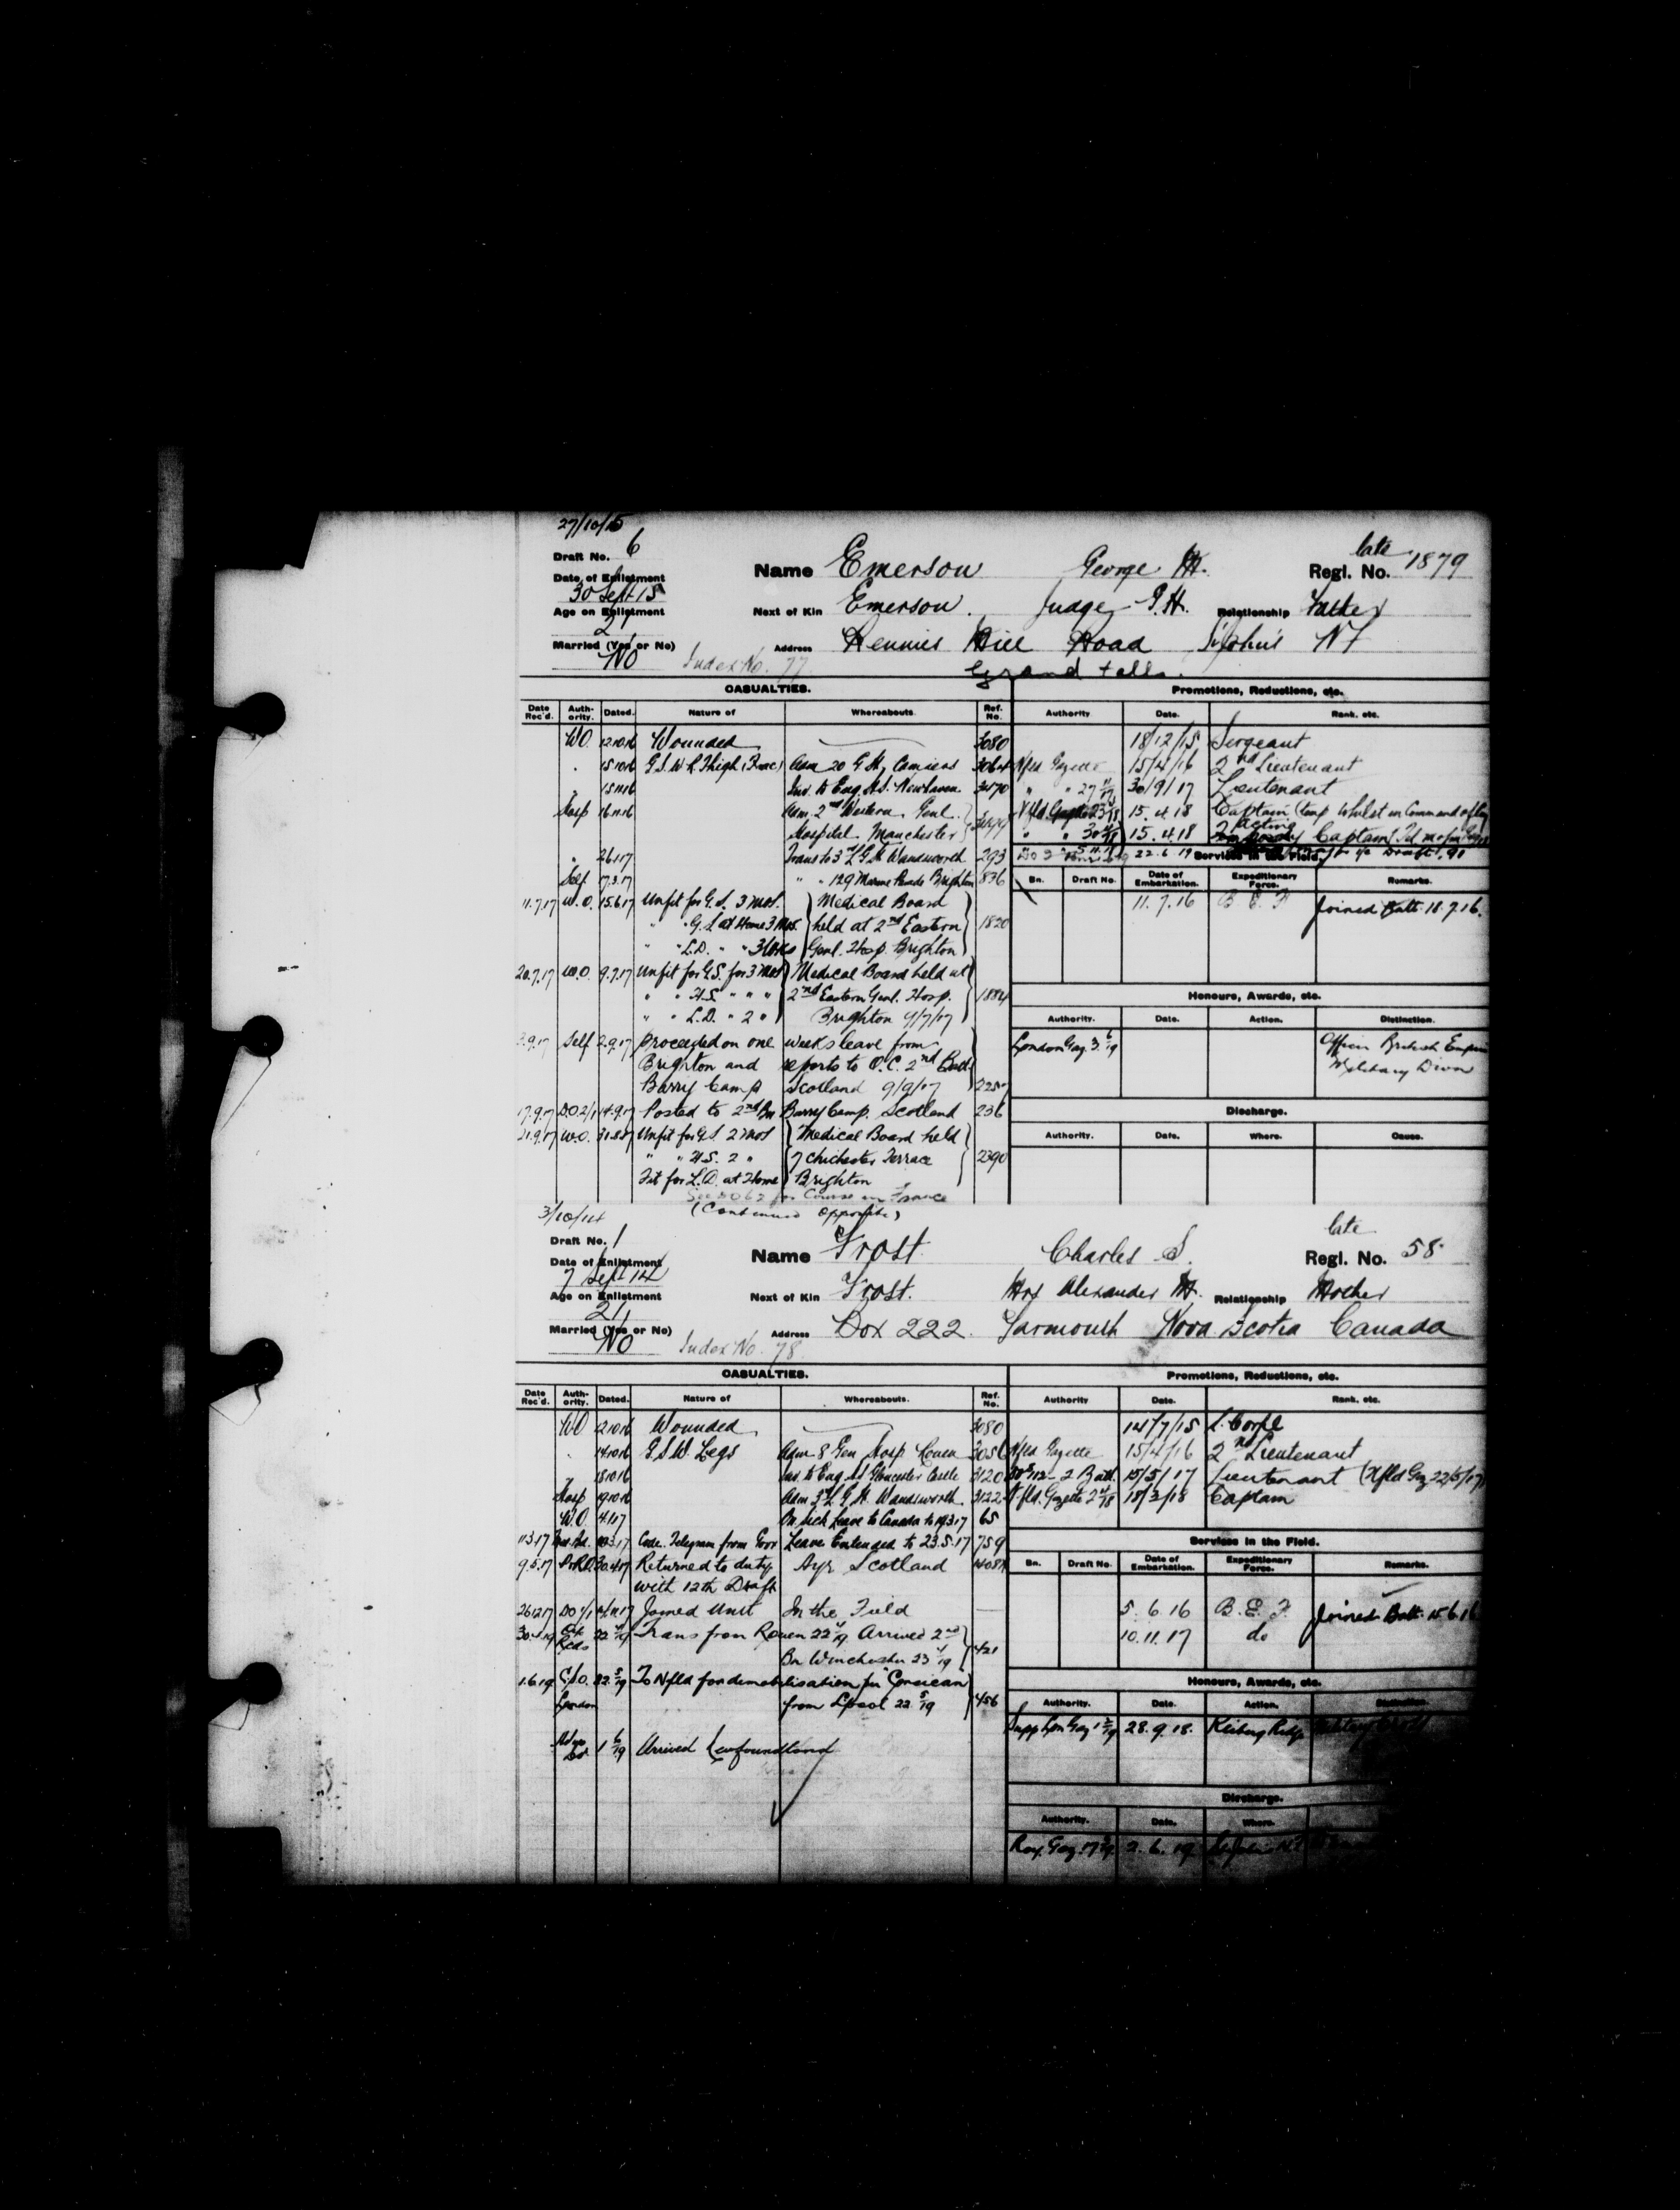 27/10/15
Draft No. 6
Name Emerson George H. late Regl. No. 1879
Date of Enlistment
30 Sept 15
Age on Enlistment
21
Next of Kin Emerson. Judge G.H. Relationship Father
Married (Yes or No)
No
Index No. 77
Address Rennies Mill Road St Johns Nf
Grand Falls.
CASUALTIES.
Date Rec'd. Auth-ority. Dated. Nature of Whereabouts. Ref. No.
W.O. 12.10.16 Wounded 3080
" 15.10.16 G.S.W. R. Thigh (Frac) Adm 20 G.H. Camiers 3064
" 15.11.16 Inv. to Eng. H.S. Newhaven. 3470
Hosp 16.11.16 Adm. 2nd Western Genl.
Hospital Manchester
" 26.1.17 Trans to 3rd L.G.H. Wandsworth 293
Self. 17.3.17 " " 129 Marine Parade Brighton 836
11.7.17 W.O. 15.6.17 Unfit for G.S. 3 Mos. Medical Board
" " G.S. at Home 3 Mos. held at 2nd Eastern 1820
" " L.D. " " 3 Wks Genl. Hosp. Brighton
20.7.17 W.O. 9.7.17 Unfit for G.S. for 3 Mos Medical Board held at
" " H.S. " " " 2nd Eastern Genl. Hosp. 1884
" " L.D. " 2 " Brighton 9/7/17
Self 2.9.17 Proceeded on one weeks leave from
Brighton and reports to O.C. 2nd Batt.
Barry Camp Scotland 9/9/17
17.9.17 D.O.2/1 14.9.17 Posted to 2nd Bn Barry Camp. Scotland 236
21.9.17 W.O. 31.8.17 Unfit for G.S 2 Mos Medical Board held
" " H.S. 2 " 7 Chichester Terrace 2390
Fit for L.D. at Home Brighton
for Course in France
(Continued Opposite)
Promotions, Reductions, etc.
Authority Date. Rank. etc.
18/12/15 Sergeant
Nfld Gazette 15/4/16 2nd Lieutenant
" " 27 30/9/17 Lieutenant
Nfld. Gazette 15.4.18 Captain (temp whilst in Command of Coy
" " 15.4.18 Acting Captain
22.6.19
Services in the Field.
Bn. Draft No. Date of Embarkation. Expeditionary Force. Remarks.
11.7.16 B.E.F Joined Batt. 18.7.16.
Honours, Awards, etc.
Authority. Date. Action. Distinction.
London Gaz. 3.6/19 Officer British Empire
Military Divn
Discharge.
Authority. Date. Where. Cause.
3/10/14
Draft No. 1
Name Frost Charles S. late Regl. No. 58
Date of Enlistment
7 Sept 14
Age on Enlistment
21
Next of Kin Frost. Mrs Alexander H. Relationship Mother
Married (Yes or No)
No
Index No. 78
Address Box 222. Yarmouth Nova Scotia Canada
CASUALTIES.
Date Rec'd. Auth-ority. Dated. Nature of Whereabouts. Ref. No.
W.O 12.10.16 Wounded 3080
" 14.10.16 G.S.W. Legs Adm 8 Gen Hosp Rouen 3056
18.10.16 Inv. to Eng. H.S Gloucester Castle 3120
Hosp 19.10.16 Adm 3rd L.G.H. Wandsworth. 3122
W.O. 4.1.17 On Sick Leave to Canada to 19.3.17 65
11.3.17 10.3.17 Code Telegram from Govr Leave Extended to 23.5.17 759
9.5.17 30.4.17 Returned to duty Ayr Scotland
with 12th Draft
26.12.17 D.O 1/1 Joined Unit In the Field
22 4/19 Trans from Rouen 22 4/19. Arrived 2nd
Bn Winchester 23 4/19 421
1.6.19 C.P.O. London 22 5/19 To Nfld for demobilisation per "Corsican"
from Lpool 22 5/19 456
1 6/19 Arrived Newfoundland
Promotions, Reductions, etc.
Authority Date. Rank. etc.
14/7/15 L. Corpl
Nfld Gazette 15/4/16 2nd Lieutenant
2 Batt. 15/5/17 Lieutenant (Nfld Gaz 22/5/17)
Nfld. Gazette 18/3/18 Captain
Services in the Field.
Bn. Draft No. Date of Embarkation. Expeditionary Force. Remarks.
5.6.16 B.E.F. Joined Batt. 15.6.16
10.11.17 do
Honours, Awards, etc.
Authority. Date. Action. Distinction.
Supp Lon Gaz 28.9.18. Keiberg Ridge Military
Discharge.
Authority. Date. Where.
2.6.19